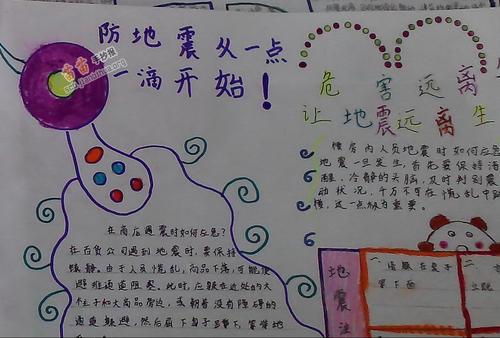 防地震从一点
一滴开始！
危害远离
让地震远离生
楼房内人员地震时如何应急
地震一旦发生,首先要保持清
醒、冷静的头脑,及时判别震
动状况,千万不可在慌乱中跳
楼,这一点极为重要。
在商店遇震时如何应急?
在百货公司遇到地震时,要保持
镇静。由于人员慌乱,商品下落,可能使
避难通道阻塞。此时,应躲在近处的大
柱子和大商品旁边,或朝着没有障碍的
通道躲避,然后屈身蹲下,等待地
地震注
一、
躲在桌子
等下面
二、